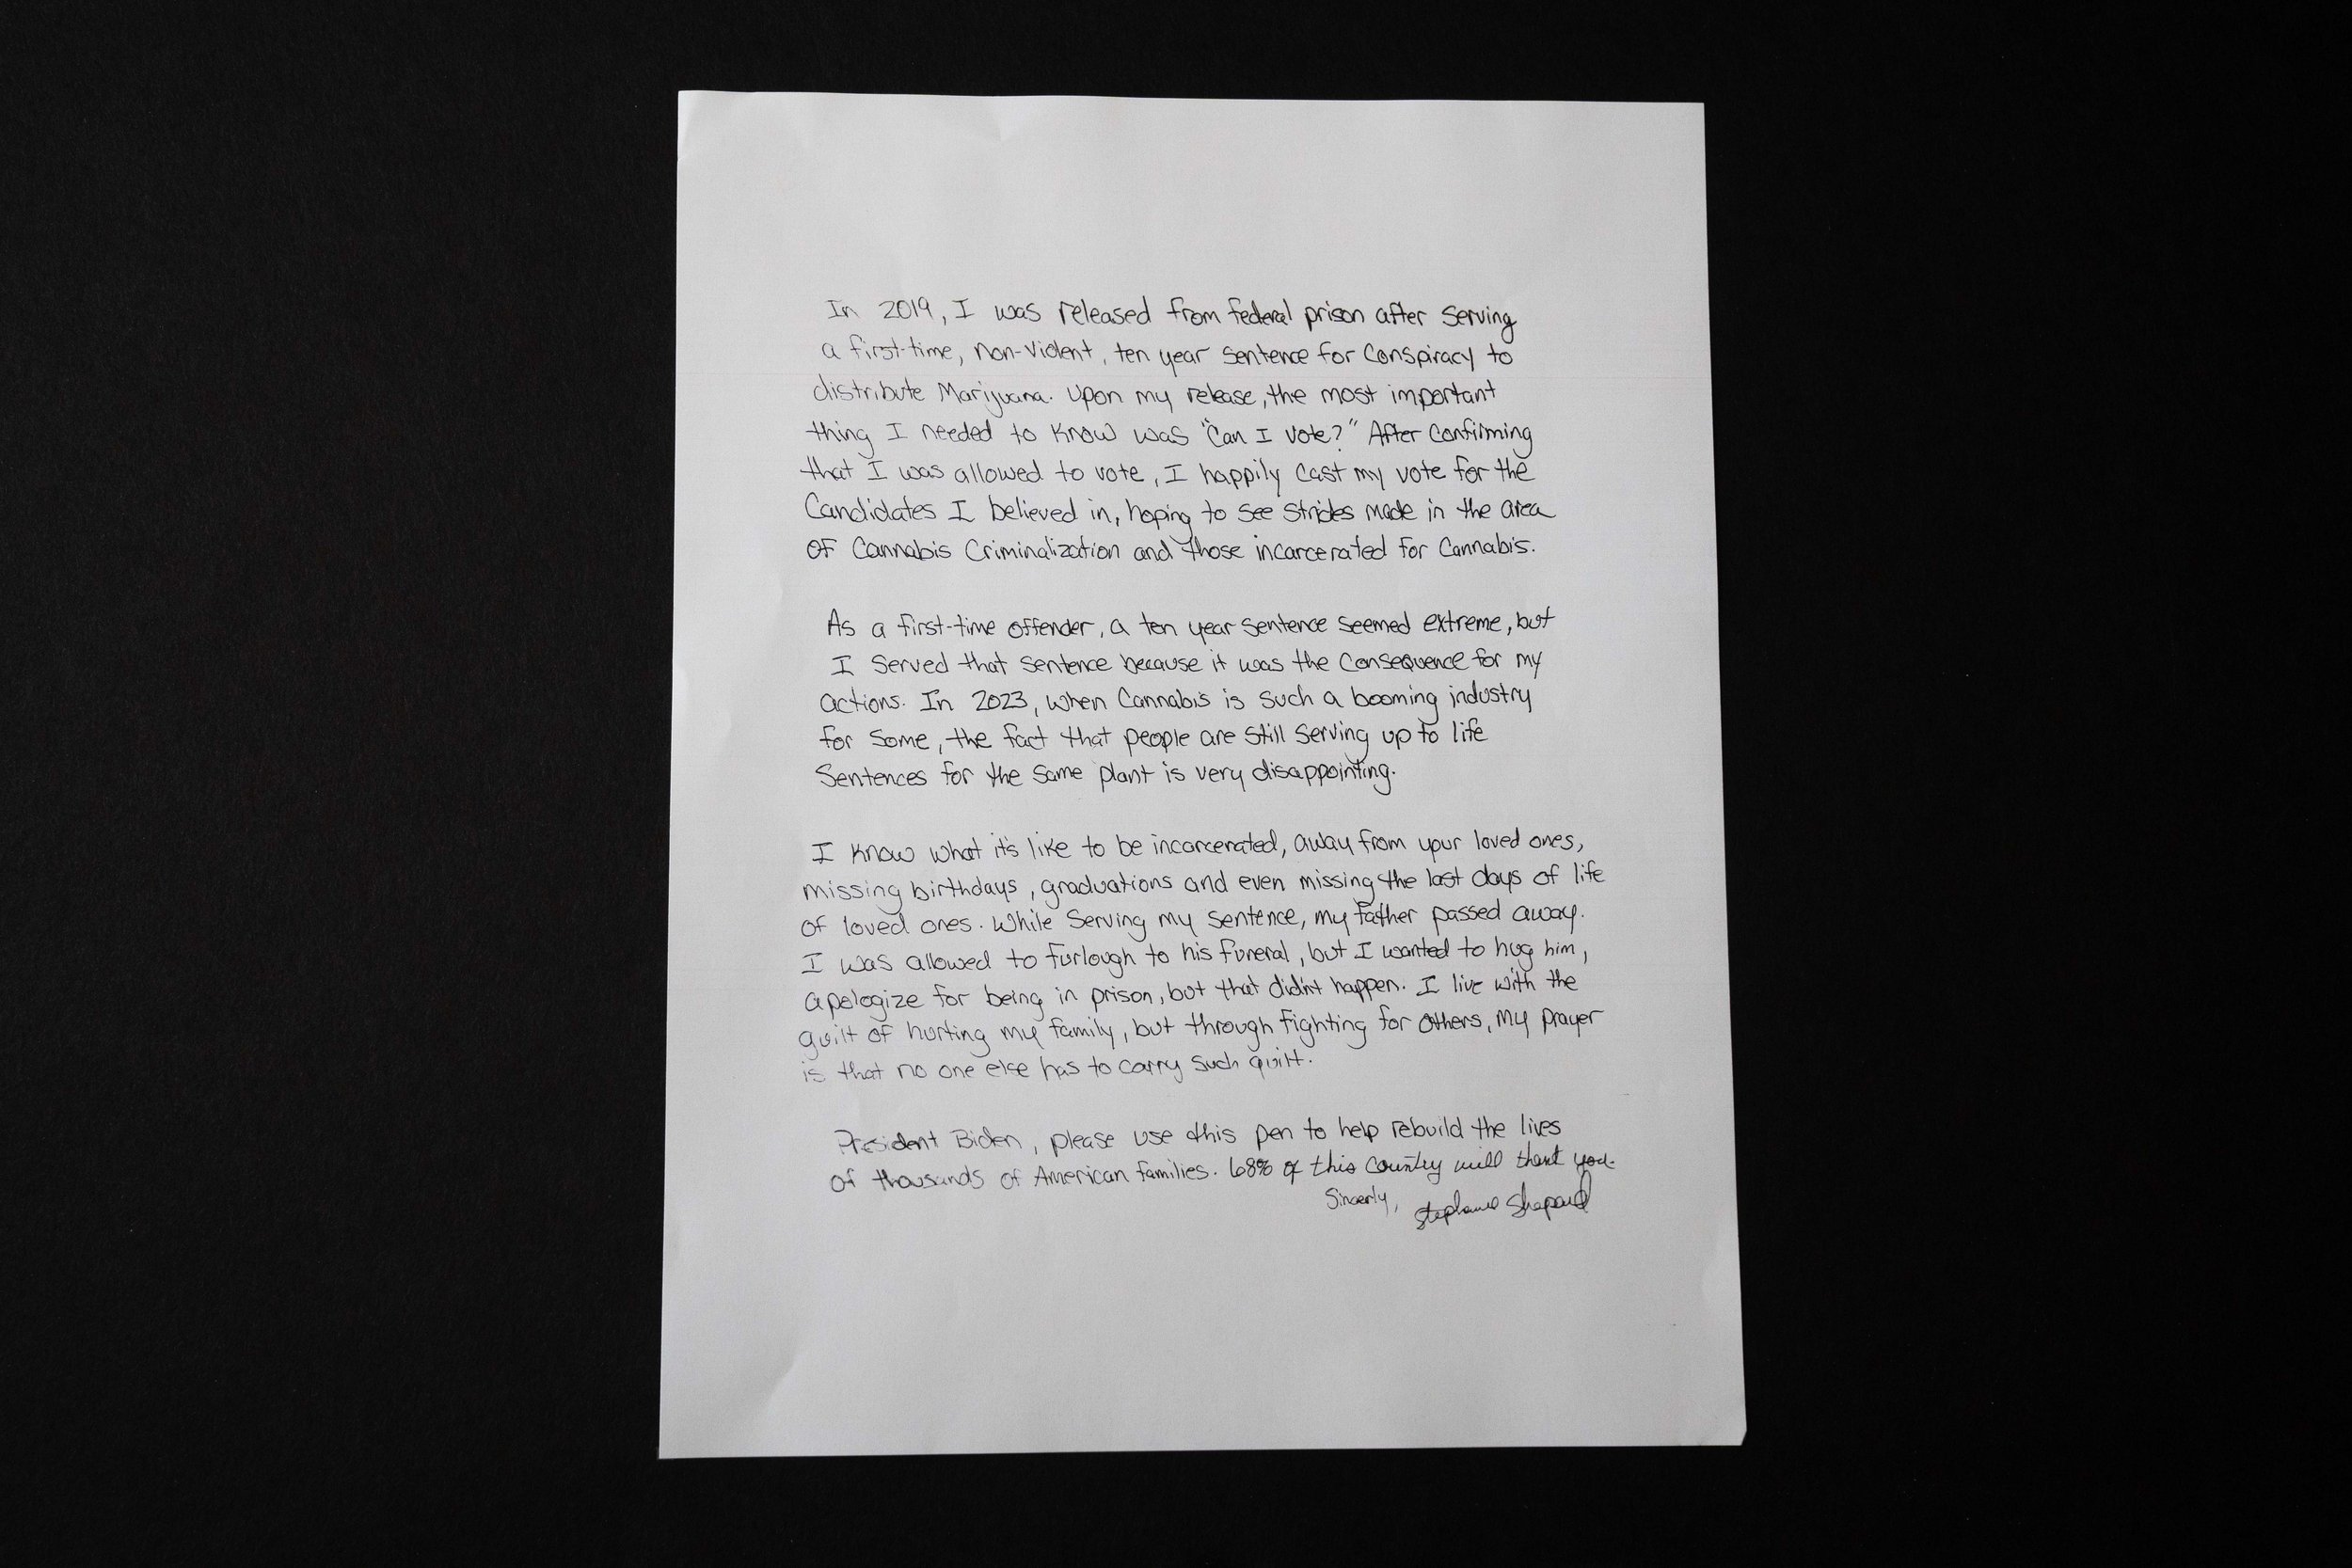 In 2019, I was released from federal prison after serving
a first-time, non-violent, ten year sentence for Conspiracy to
distribute Marijuana. Upon my release, the most important
thing I needed to know was "Can I vote?" After Confirming
that I was allowed to vote, I happily cast my vote for the
Candidates I believed in, hoping to see strides made in the area
of Cannabis Criminalization and those incarcerated for Cannabis.
As a first-time offender, a ten year sentence seemed extreme, but
I served that sentence because it was the consequence for my
actions. In 2023, when Cannabis is such a booming industry
for some, the fact that people are still serving up to life
Sentences for the same plant is very disappointing.
I know what it's like to be incarcerated, away from your loved ones,
missing birthdays, graduations and even missing the last days of life
of loved ones. While serving my sentence, my father passed away.
I was allowed to furlough to his funeral, but I wanted to hug him,
apologize for being in prison, but that didn't happen. I live with the
guilt of hurting my family, but through fighting for others, my prayer
is that no one else has to carry such guilt.
President Biden, please use this pen to help rebuild the lives
of thousands of American families. 68% of this country will thank you.
Sincerly, Stephanie Shepard